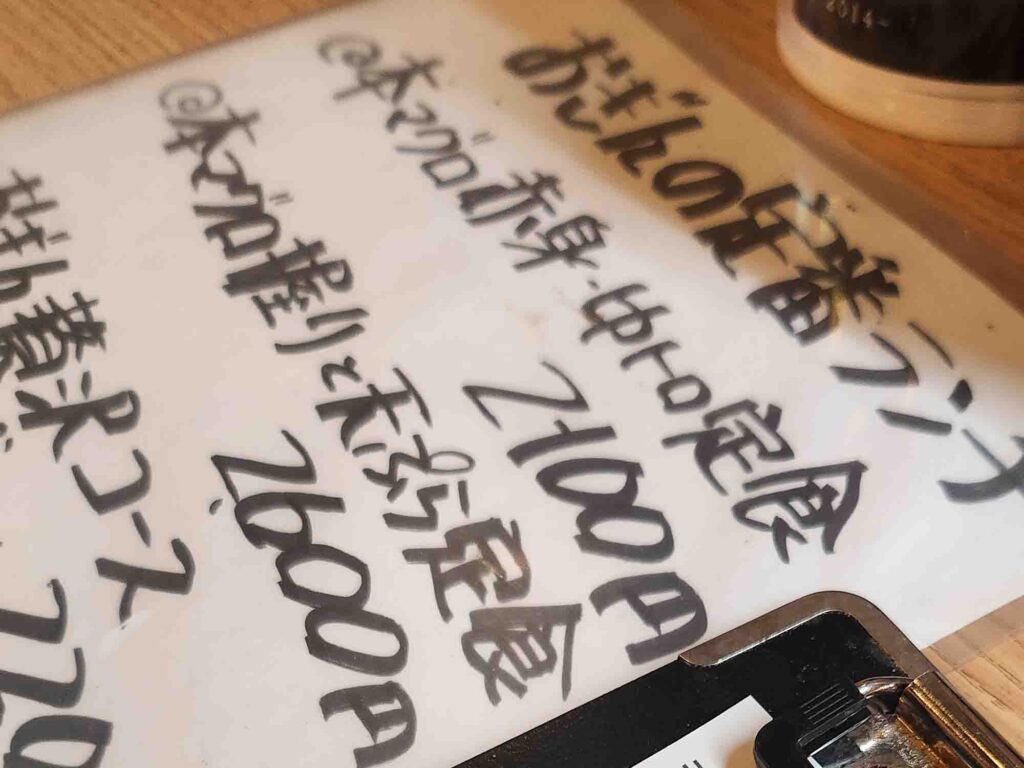 おぎんの定番ランチ
@本マグロ赤身・中トロ定食
2100円
@本マグロ握りと天ぷら定食
2600円
おぎん贅沢コース
2014~